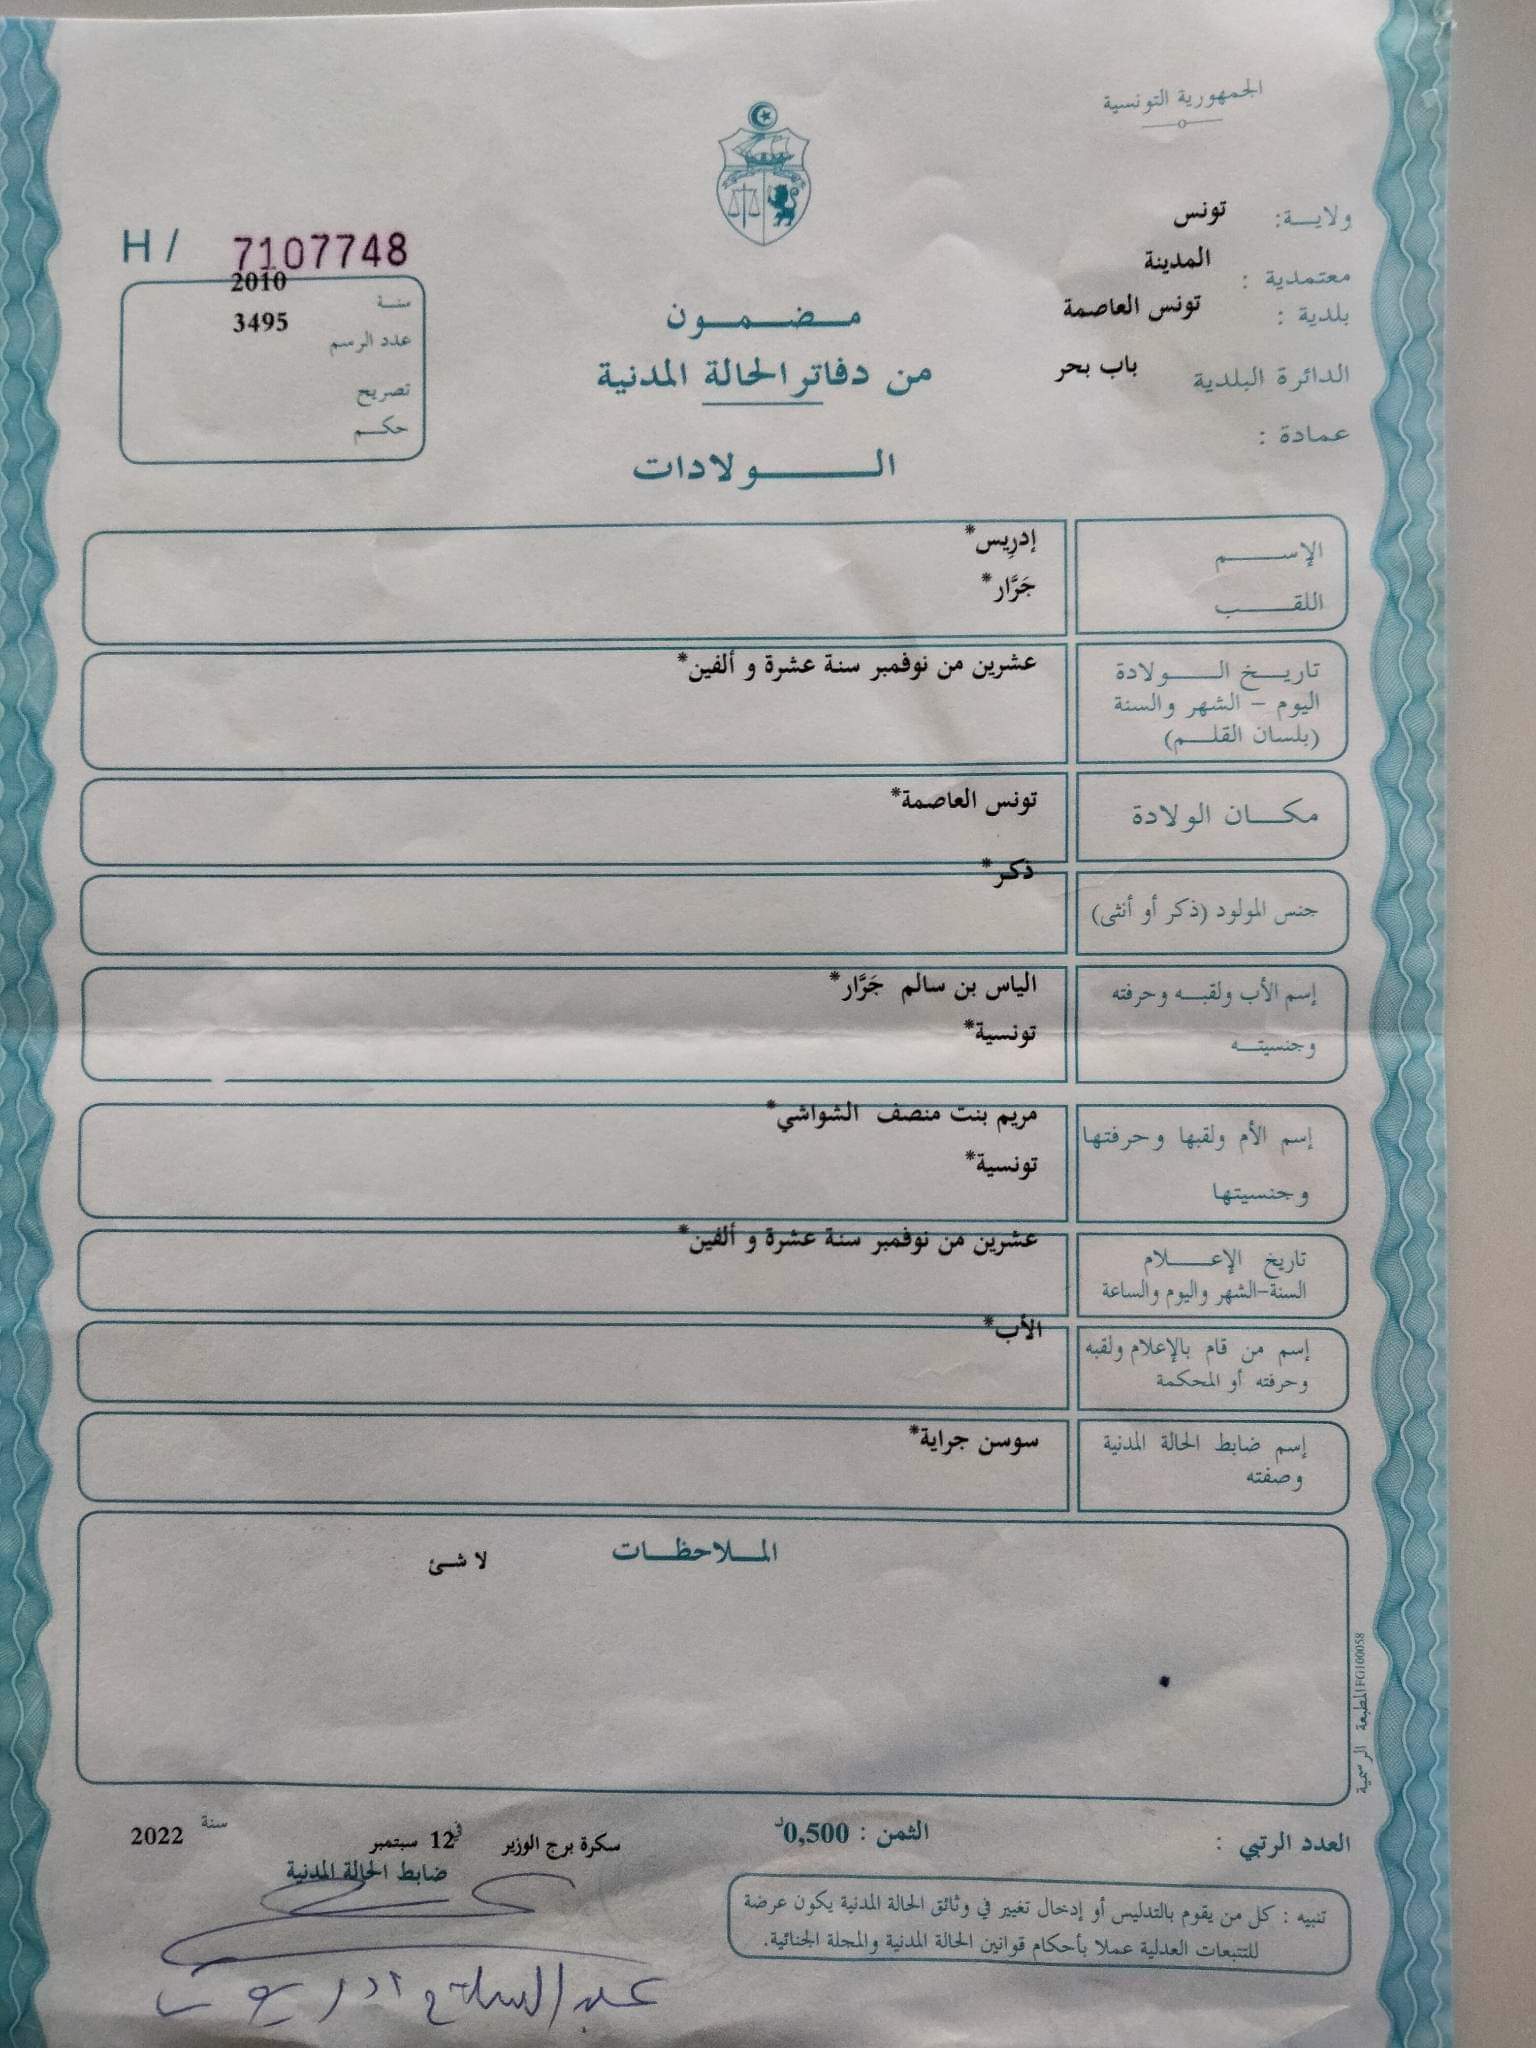 الجمهورية التونسية
ولايـــة: تونس
معتمدية : المدينة
بلدية : تونس العاصمة
الدائرة البلدية باب بحر
عمادة :
H / 7107748
سنـة 2010
عدد الرسم 3495
تصريح
حكـم
مـــضـــمـــون
من دفاتر الحالة المدنية
الـــــــولادات
الإســـــم إدرِيس*
اللقـــــب جَرَّار*
تاريـــخ الـــــولادة عشرين من نوفمبر سنة عشرة و ألفين*
اليوم – الشهر والسنة
(بلسان القلـــم)
مكـــان الولادة تونس العاصمة*
جنس المولود (ذكر أو أنثى) ذكر*
إسم الأب ولقبـــه وحرفته الياس بن سالم جَرَّار*
وجنسيتـــه تونسية*
إسم الأم ولقبها وحرفتها مريم بنت منصف الشواشي*
وجنسيتها تونسية*
تاريخ الإعـــــلام عشرين من نوفمبر سنة عشرة و ألفين*
السنة-الشهر واليوم والساعة
إسم من قام بالإعلام ولقبه الأب*
وحرفته أو المحكمة
إسم ضابط الحالة المدنية سوسن جراية*
وصفته
المـــلاحظـــات
لا شئ
المطبعة الرسمية FG100058
العدد الرتبي :
الثمن : 0,500د
سكرة برج الوزير في 12 سبتمبر سنة 2022
ضابط الحالة المدنية
تنبيه : كل من يقوم بالتدليس أو إدخال تغيير في وثائق الحالة المدنية يكون عرضة
للتتبعات العدلية عملا بأحكام قوانين الحالة المدنية والمجلة الجنائية.